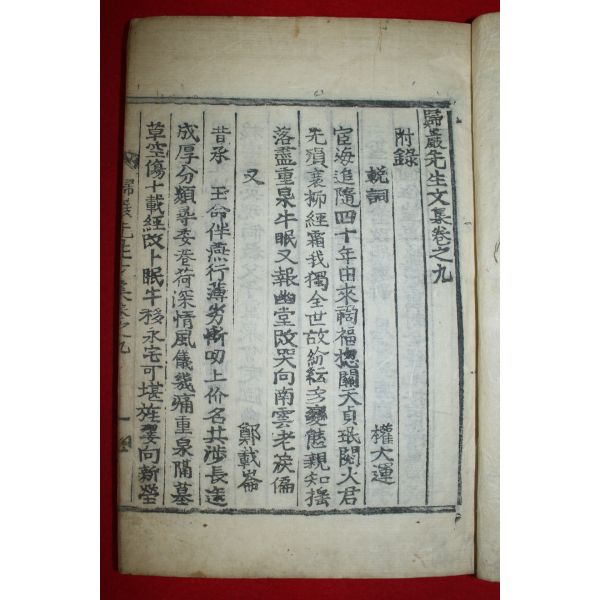 歸巖先生文集卷之九
附錄
輓詞 權大運
宦海追隨四十年由來禍福揔關天貞珉閱火君
无損衰柳經霜我獨全世故紛紜多變態親知搖
落盡重泉牛眠又報幽堂改哭向南雲老淚偏
又 鄭載崙
昔承 王命伴燕行薄劣慚叨上价名共涉長途
成厚分頻尋委巷荷深情風儀幾痛重泉隔墓
草空傷十載經改卜眠牛移永宅可堪旌翣向新塋
歸巖先生文集卷之九 一